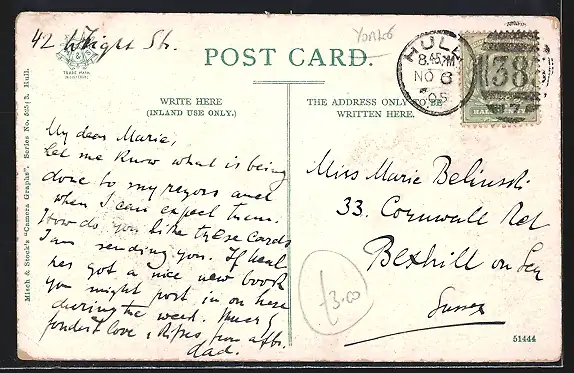 42 Wright St.
Yorks
POST CARD.
TRADE MARK
HULL
8.45 PM
NO 6
05
383
HAL
WRITE HERE
(INLAND USE ONLY.)
THE ADDRESS ONLY TO BE
WRITTEN HERE.
My dear Marie,
Let me know what is being
done to my razors and
when I can expect them.
How do you like these cards
I am sending you. If Neal
has got a nice new book
you might post in on here
during the week. Much
fondest love & kisses from affte.
dad.
Miss Marie Belinski
33. Cornwall Rd
Bexhill on Sea
Sussex
£3.00
51444
Misch & Stock's "Camera Graphs". Series No. Hull.